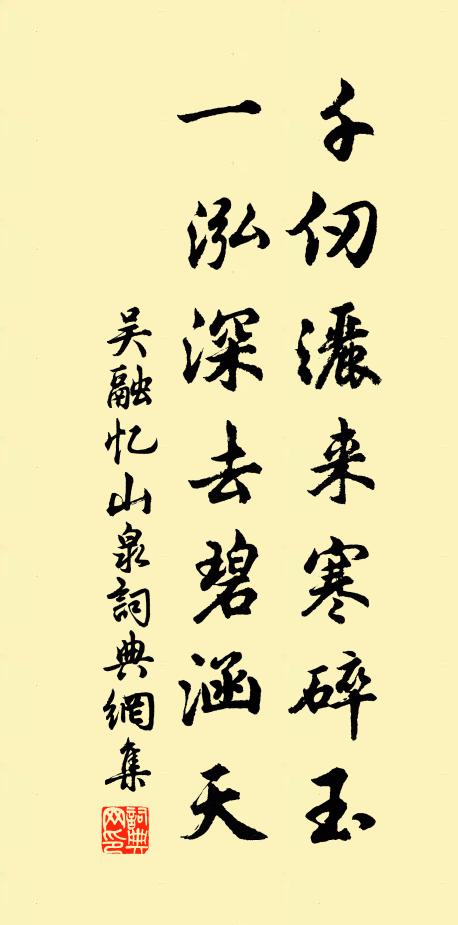 千仞灑来寒碎玉
一泓深去碧涵天
吴融忆山泉詞典網集
詞典网印